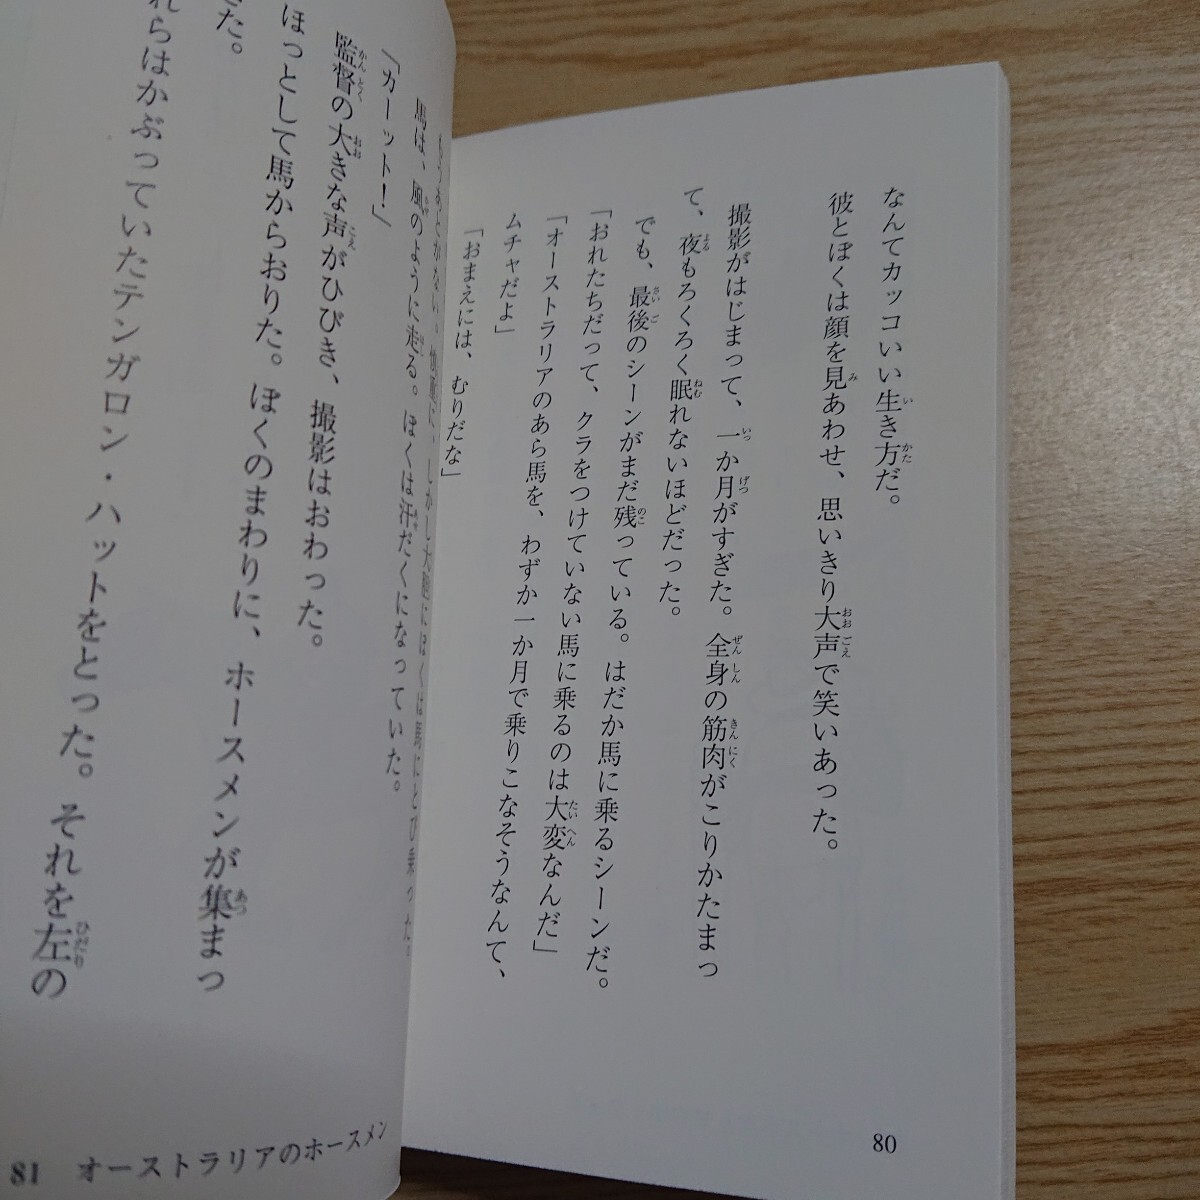 なんてカッコいい生き方だ。
彼とぼくは顔を見あわせ、思いきり大声で笑いあった。
撮影がはじまって、一か月がすぎた。全身の筋肉がこりかたまっ
て、夜もろくろく眠れないほどだった。
でも、最後のシーンがまだ残っている。はだか馬に乗るシーンだ。
「おれたちだって、クラをつけていない馬に乗るのは大変なんだ」
「オーストラリアのあら馬を、わずか一か月で乗りこなそうなんて、
ムチャだよ」
「おまえには、むりだな」
80
しかし大胆にぼくは馬にとび乗った。
馬は、風のように走る。ぼくは汗だくになっていた。
「カーット！」
監督の大きな声がひびき、撮影はおわった。
ほっとして馬からおりた。ぼくのまわりに、ホースメンが集まっ
きた。
れらはかぶっていたテンガロン・ハットをとった。それを左の
81 オーストラリアのホースメン